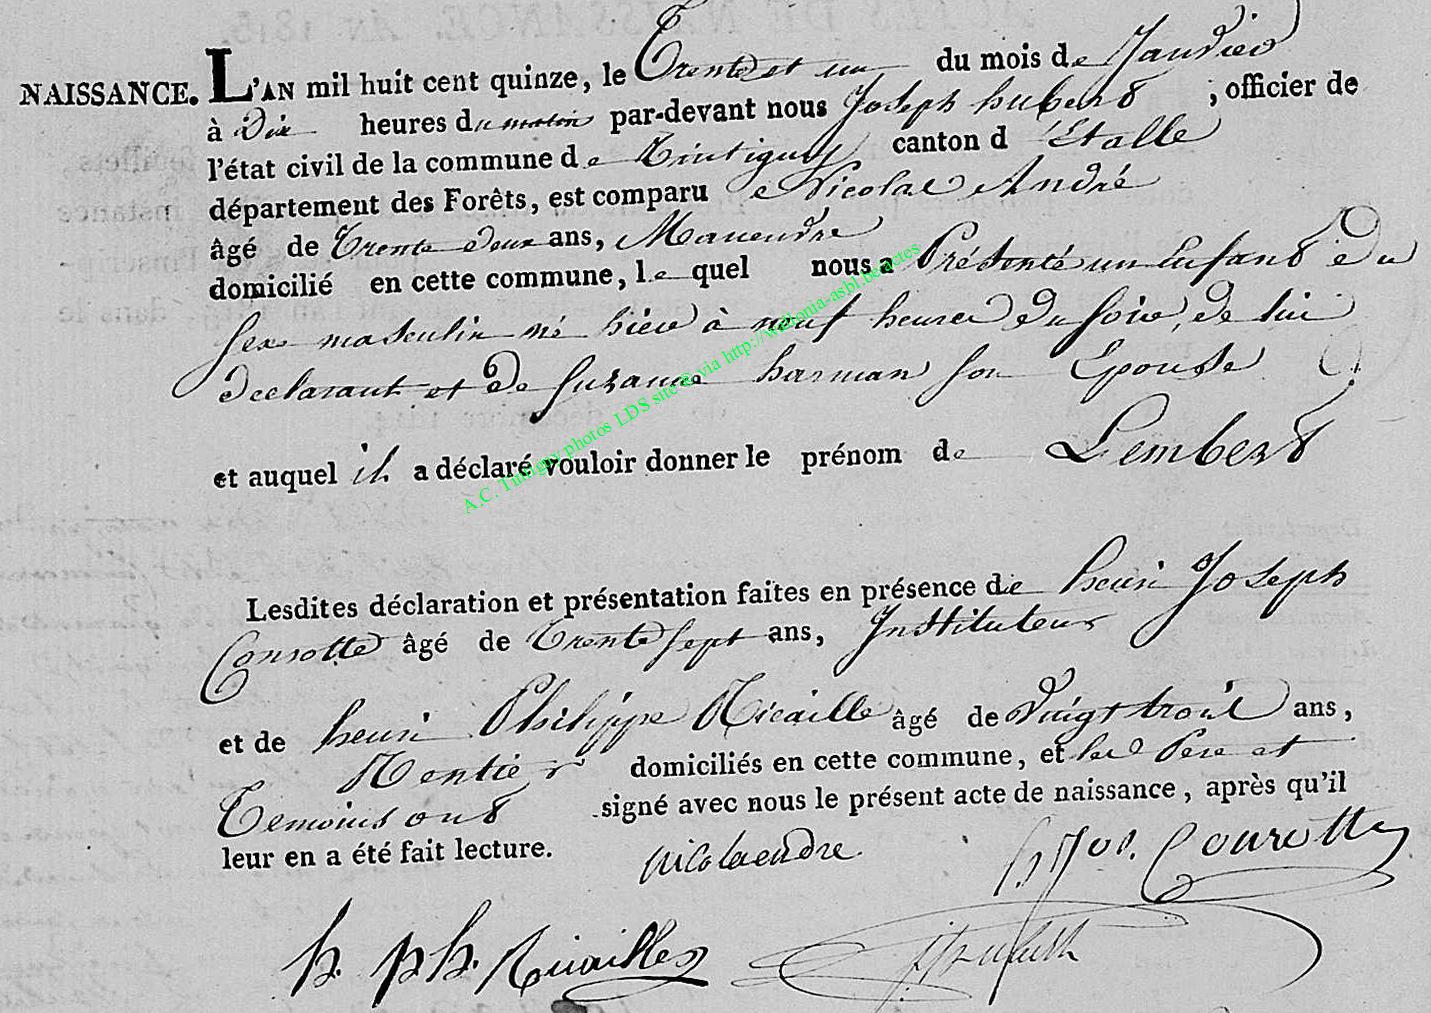 NAISSANCE. L'AN mil huit cent quinze, le Trente et un du mois de Janvier
à Dix heures du matin par-devant nous Joseph hubert, officier de
l'état civil de la commune de Tintigny canton d'Etalle
département des Forêts, est comparu Nicolas André
âgé de Trente deux ans, Maneuvre
domicilié en cette commune, lequel nous a Présenté un Enfant du
sexe masculin né hier à neuf heures du soir, de lui
declarant et de Suzanne harman son Epouse
et auquel il a déclaré vouloir donner le prénom de Lembert
Lesdites déclaration et présentation faites en présence de henri Joseph
Conrotte âgé de Trente sept ans, Instituteur
et de henri Philippe Ricaille âgé de Vingt trois ans,
Rentier domiciliés en cette commune, et les Pere et
Temoins ont signé avec nous le présent acte de naissance, après qu'il
leur en a été fait lecture.
nicola endre
h Jos. Conrotte
h. ph. Ricaille
A.C. Tintigny photos LDS site © via http://wallonia-asbl.be/actes